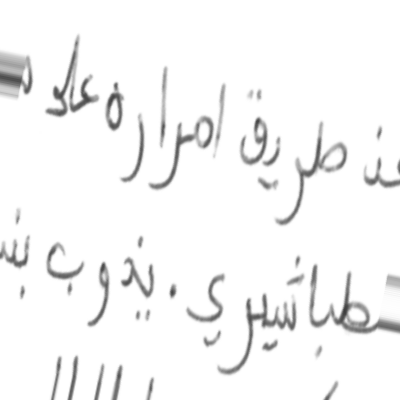 عن طريق امراره علا
طباشيري . يذوب